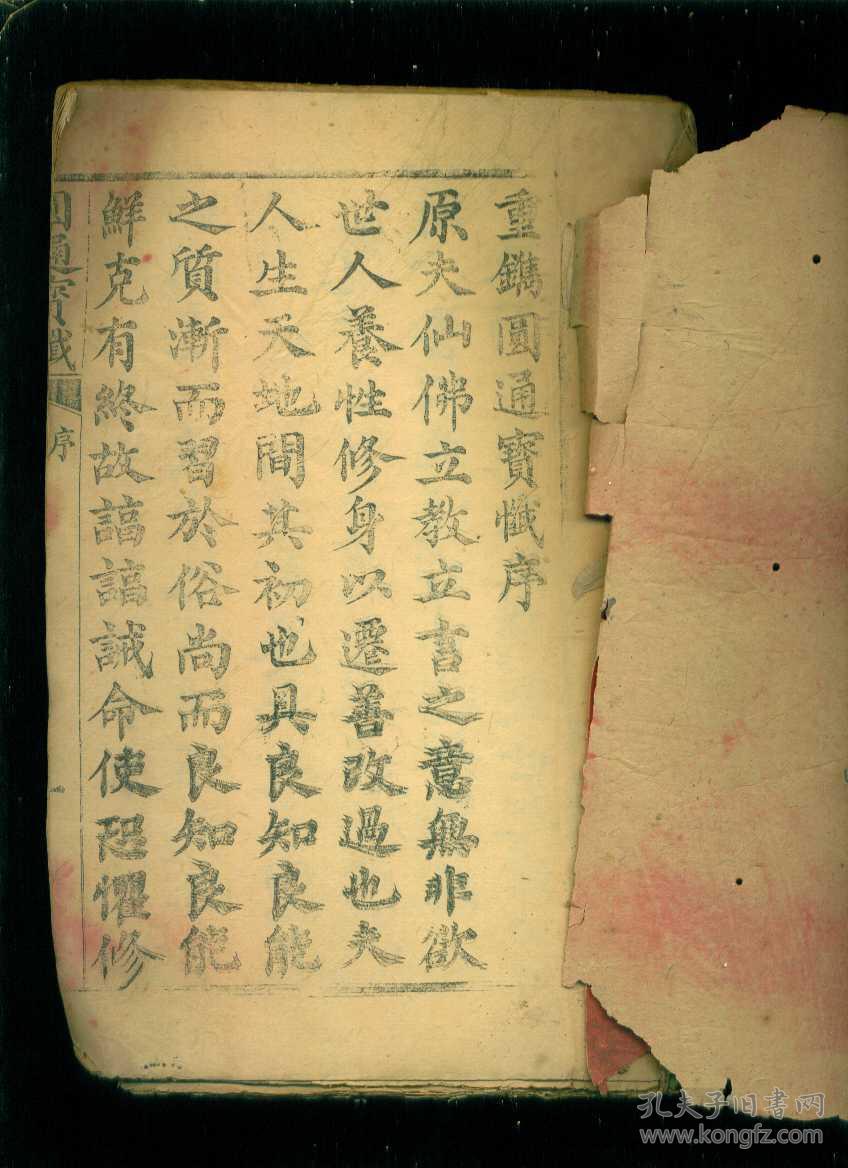 重鐫圓通寶懺序
原夫仙佛立教立言之意無非欲
世人養性修身以遷善改過也夫
人生天地間其初也具良知良能
之質漸而習於俗尚而良知良能
鮮克有終故諄諄誡命使恐懼修
圓通寶懺 序 一
孔夫子旧书网
www.kongfz.com